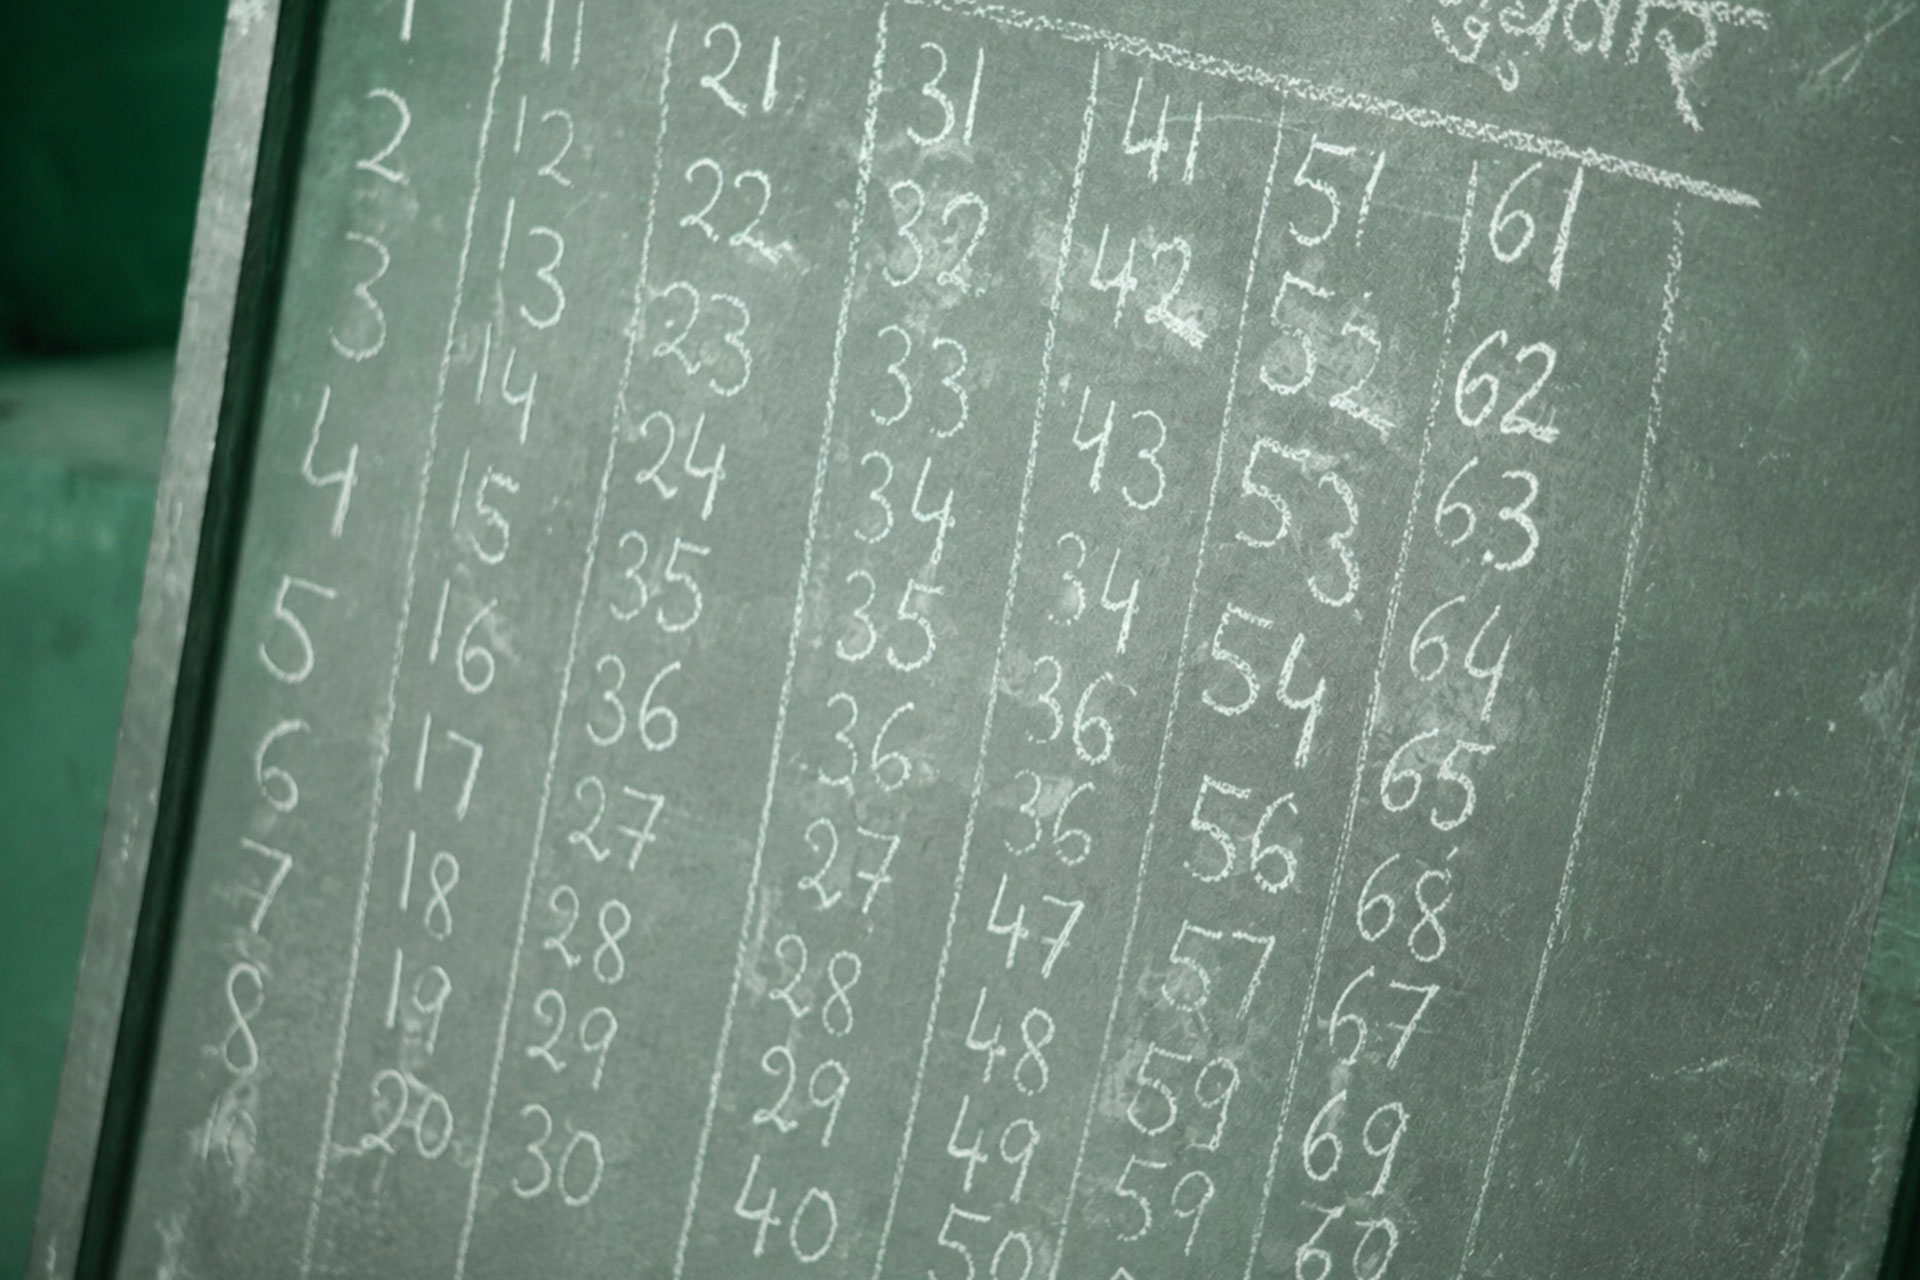 बुधवार
1 11 21 31 41 51 61
2 12 22 32 42 52 62
3 13 23 33 43 53 63
4 14 24 34 34 54 64
5 15 35 35 36 56 65
6 16 36 36 36 57 68
7 17 27 27 47 59 67
8 18 28 28 48 59 69
10 19 29 29 49 60
20 30 40 50